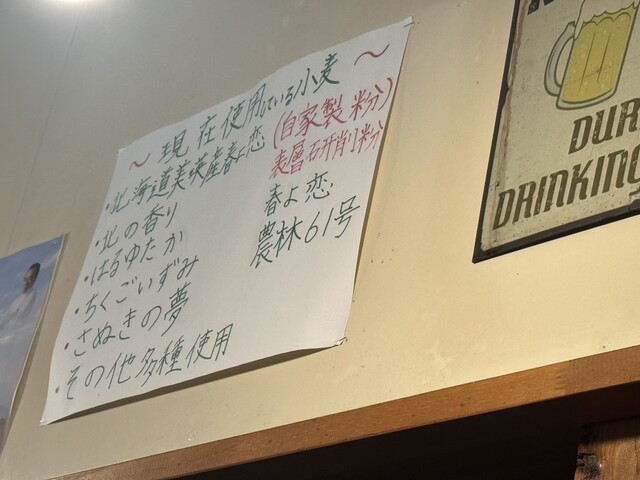 ～ 現在使用している小麦 ～
・北海道美瑛産春よ恋
・北の香り
・はるゆたか
・ちくごいずみ
・さぬきの夢
・その他多種使用
(自家製粉)
表層研削粉
春よ恋
農林61号
DRINKING